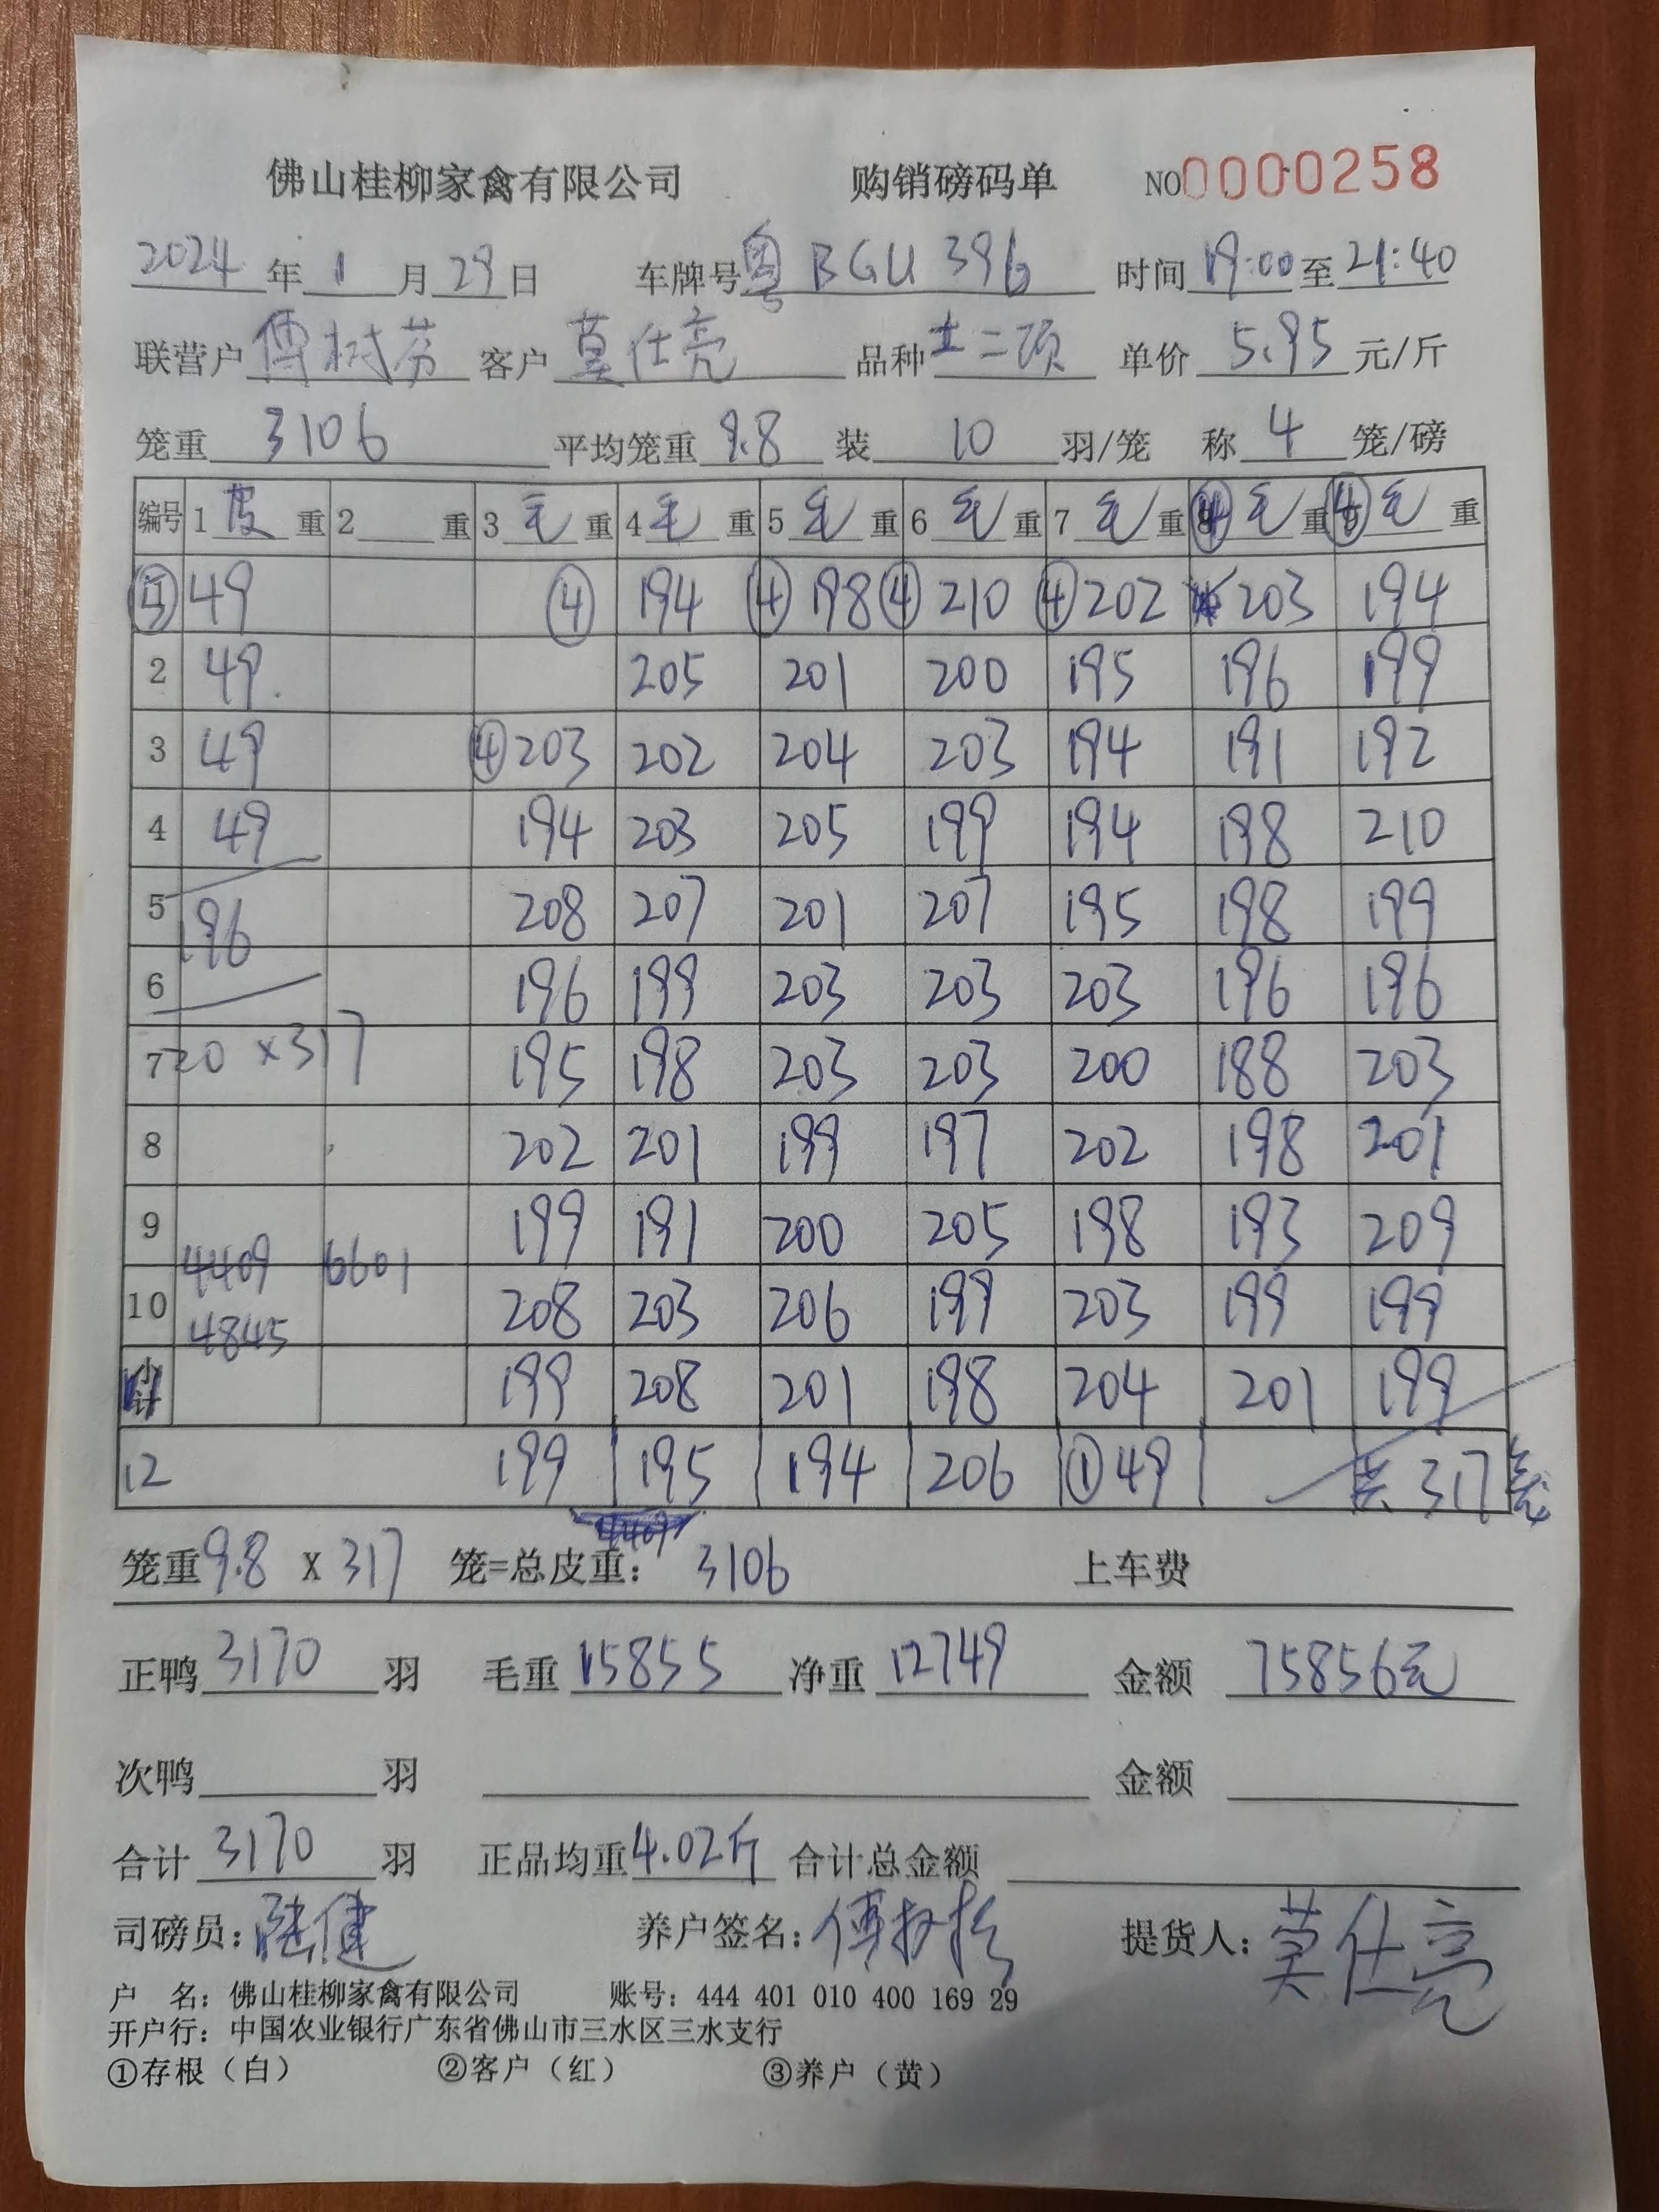 佛山桂柳家禽有限公司 购销磅码单 NO0000258
2024年1月29日 车牌号粤BGU396 时间19:00至21:40
联营户傅树芬 客户莫仕亮 品种土二项 单价5.95元/斤
笼重3106 平均笼重9.8 装10羽/笼 称4笼/磅
编号 1皮重 2重 3毛重 4毛重 5毛重 6毛重 7毛重 ④毛重 ④毛重
⑤ 49 ④ 194 ④ 198 ④ 210 ④ 202 203 194
2 49. 205 201 200 195 196 199
3 49 ④203 202 204 203 194 191 192
4 49 194 203 205 199 194 198 210
5 196 208 207 201 207 195 198 199
6 196 199 203 203 203 196 196
7 20×317 195 198 203 203 200 188 203
8 202 201 199 197 202 198 201
9 199 191 200 205 198 193 209
4409 6601
10 208 203 206 199 203 199 199
4845
小计 199 208 201 198 204 201 199
12 199 195 194 206 ①49 共317笼
4409
笼重9.8×317 笼=总皮重：3106 上车费
正鸭3170羽 毛重15855 净重12749 金额75856元
次鸭 羽 金额
合计3170羽 正品均重4.02斤 合计总金额
司磅员：陆健 养户签名：傅树芬 提货人：莫仕亮
户 名：佛山桂柳家禽有限公司 账号：444 401 010 400 169 29
开户行：中国农业银行广东省佛山市三水区三水支行
①存根（白） ②客户（红） ③养户（黄）